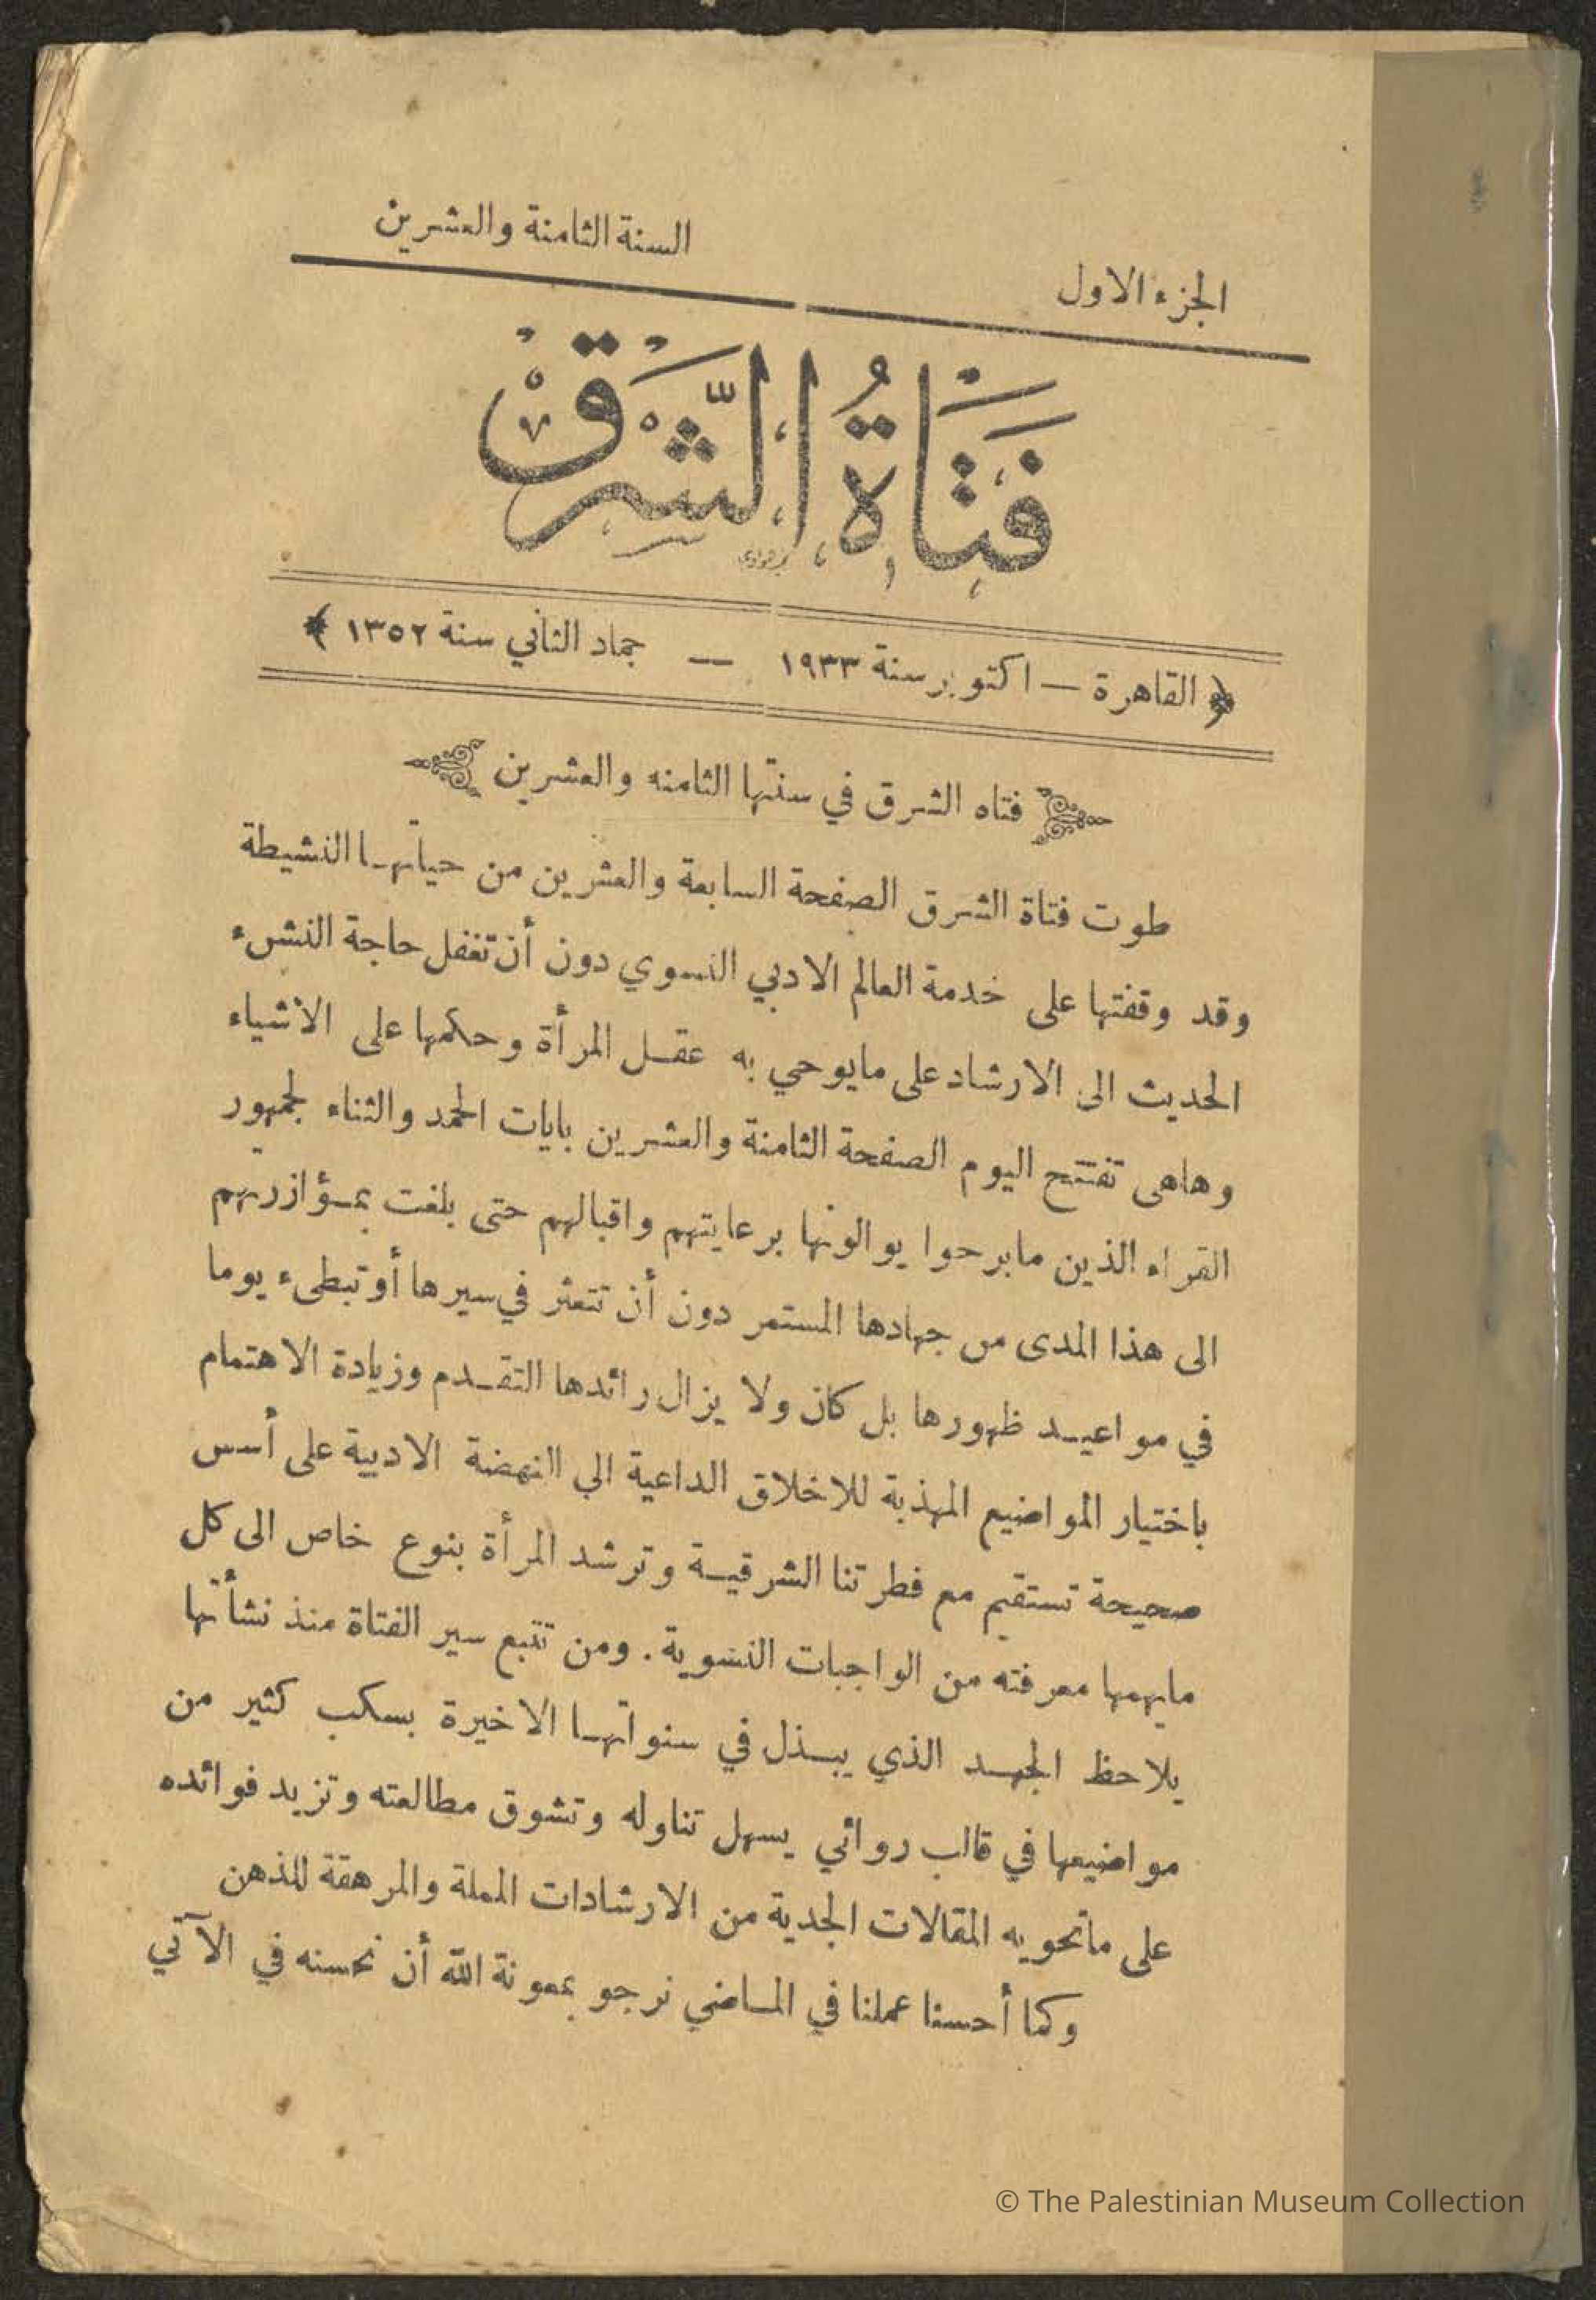 الجزء الاول
السنة الثامنة والعشرين
فَتَاةُ الشَّرْقْ
القاهرة — اكتوبر سنة ١٩٣٣ — جماد الثاني سنة ١٣٥٢
فتاه الشرق في سنتها الثامنه والعشرين
طوت فتاة الشرق الصفحة السابعة والعشرين من حياتهـا النشيطة
وقد وقفتها على خدمة العالم الادبي النسوي دون أن تغفل حاجة النشء
الحديث الى الارشاد على مايوحي به عقـل المرأة وحكمها على الاشياء
وهاهى تفتتح اليوم الصفحة الثامنة والعشرين بايات الحمد والثناء لجمهور
القراء الذين مابرحوا يوالونها برعايتهم واقبالهم حتى بلغت بمـؤازرتهم
الى هذا المدى من جهادها المستمر دون أن تتعثر في سيرها أو تبطىء يوما
في مواعيـد ظهورها بل كان ولا يزال رائدها التقـدم وزيادة الاهتمام
باختيار المواضيع المهذبة للاخلاق الداعية الي النهضة الادبية على أسس
صحيحة تستقيم مع فطرتنا الشرقيـة وترشد المرأة بنوع خاص الى كل
مايهمها معرفته من الواجبات النسوية . ومن تتبع سير الفتاة منذ نشأتها
يلاحظ الجهـد الذي يبـذل في سنواتهـا الاخيرة بسكب كثير من
مواضيعها في قالب روائي يسهل تناوله وتشوق مطالعته وتزيد فوائده
على ماتحويه المقالات الجدية من الارشادات المملة والمرهقة للذهن
وكما أحسنا عملنا في المـاضي نرجو بمعونة الله أن نحسنه في الآتي
© The Palestinian Museum Collection